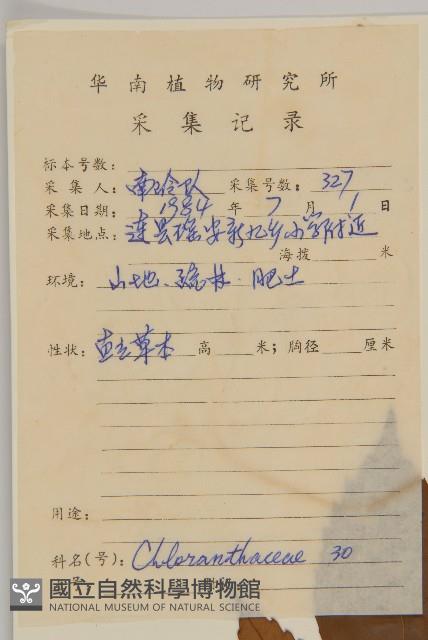 华南植物研究所
采集记录
标本号数：
采集人：南岭队 采集号数：327
采集日期：1984 年 7 月 1 日
采集地点：连县瑶安新九乡小学附近
海拨 米
环境：山地、疏林．肥土
性状：直立草本 高 米；胸径 厘米
用途：
科名(号)：Chloranthaceae 30
國立自然科學博物館
NATIONAL MUSEUM OF NATURAL SCIENCE